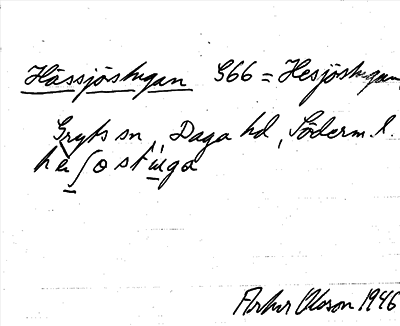 Hässjöstugan G66 = Hesjöstugan,
Gryts sn, Daga hd, Söderm. l.
hä∫ostɯga
Arthur Olsson 1946